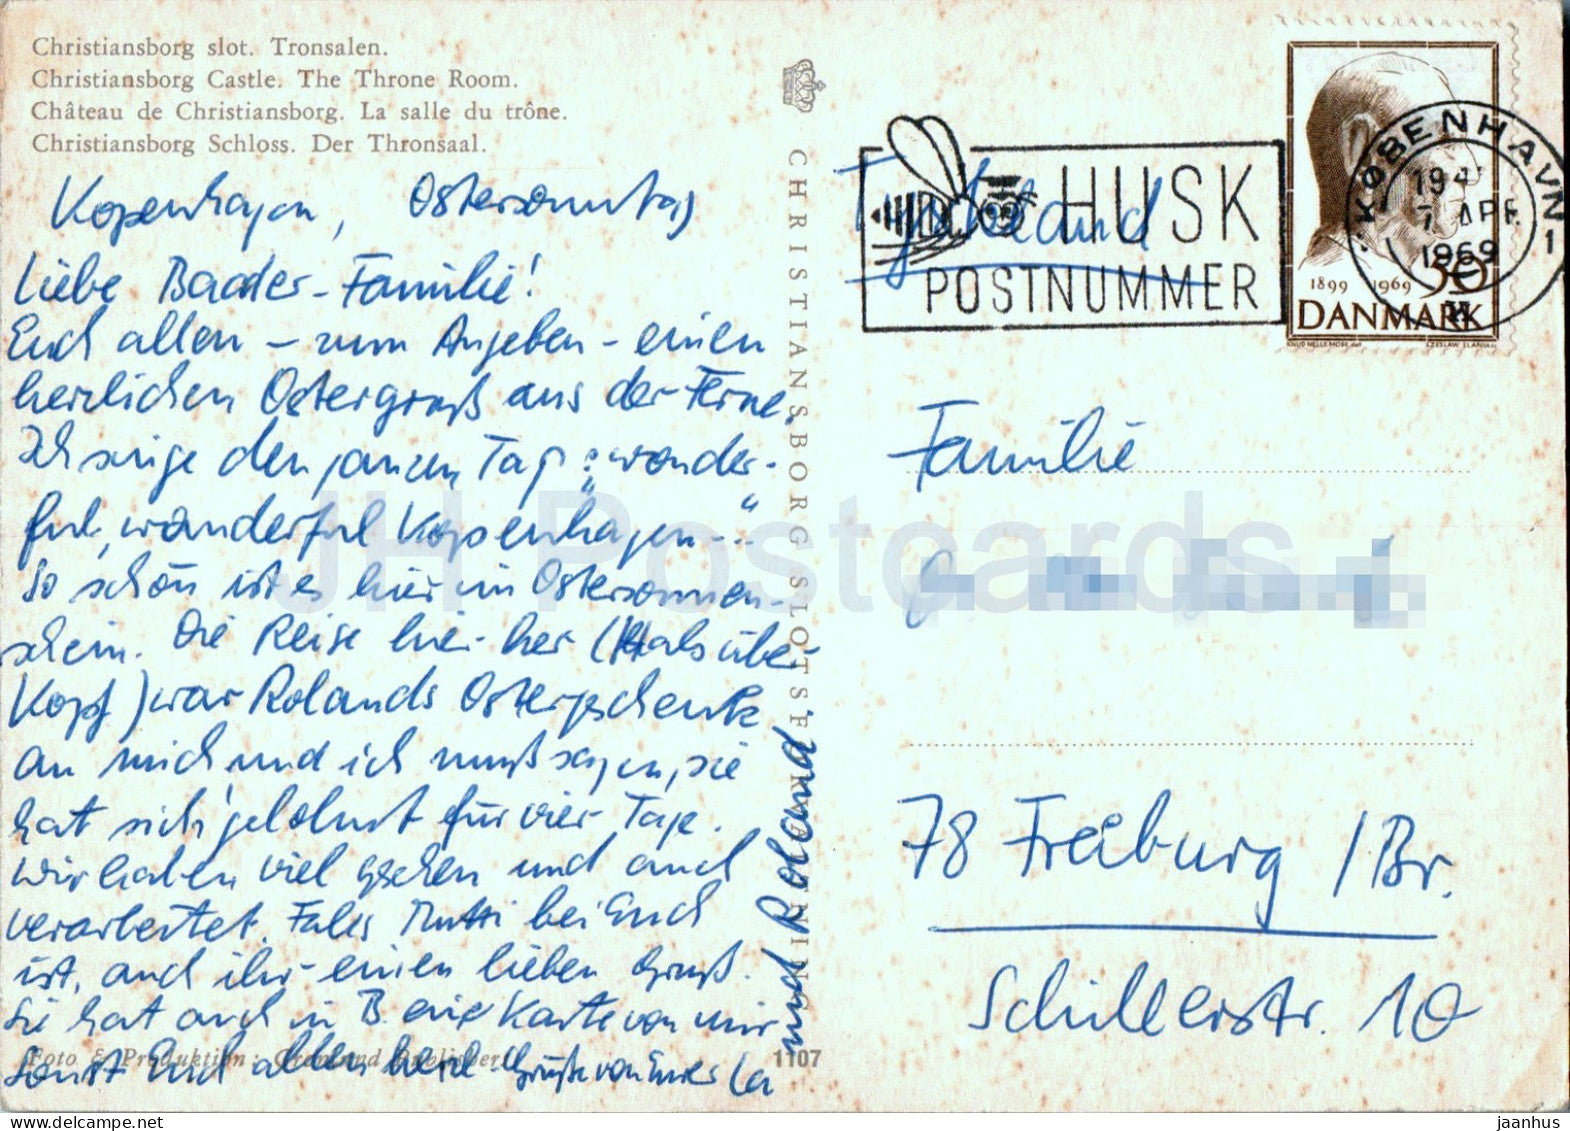 Christiansborg slot. Tronsalen.
Christiansborg Castle. The Throne Room.
Château de Christiansborg. La salle du trône.
Christiansborg Schloss. Der Thronsaal.
Kopenhagen, Ostersonntag
Liebe Baader-Familie!
Euch allen – zum Angeben – einen
herzlichen Ostergruß aus der Ferne.
Ich singe den ganzen Tag: „wonder-
ful, wonderful Kopenhagen –“
So schön ist es hier im Ostersonnen-
schein. Die Reise hier-her (Hals über
Kopf) war Rolands Ostergeschenk
an mich und ich muß sagen, sie
hat sich gelohnt für vier Tage.
Wir haben viel gesehen und auch
verarbeitet. Falls Mutti bei Euch
ist, auch ihr einen lieben Gruß.
Sie hat auch in B. eine Karte von mir
Sonst Euch allen herzl. Grüße von Eurer
und Roland.
Foto & Produktion: Grønlund
1107
CHRISTIANSBORG SLOTSFORVALTNING
HUSK
POSTNUMMER
KØBENHAVN 1
7 APR.
1969
1899 1969
50
DANMARK
CZESLAW SLANIA
Familie
78 Freiburg /Br.
Schillerstr. 10
JH Postcards
jaanhus